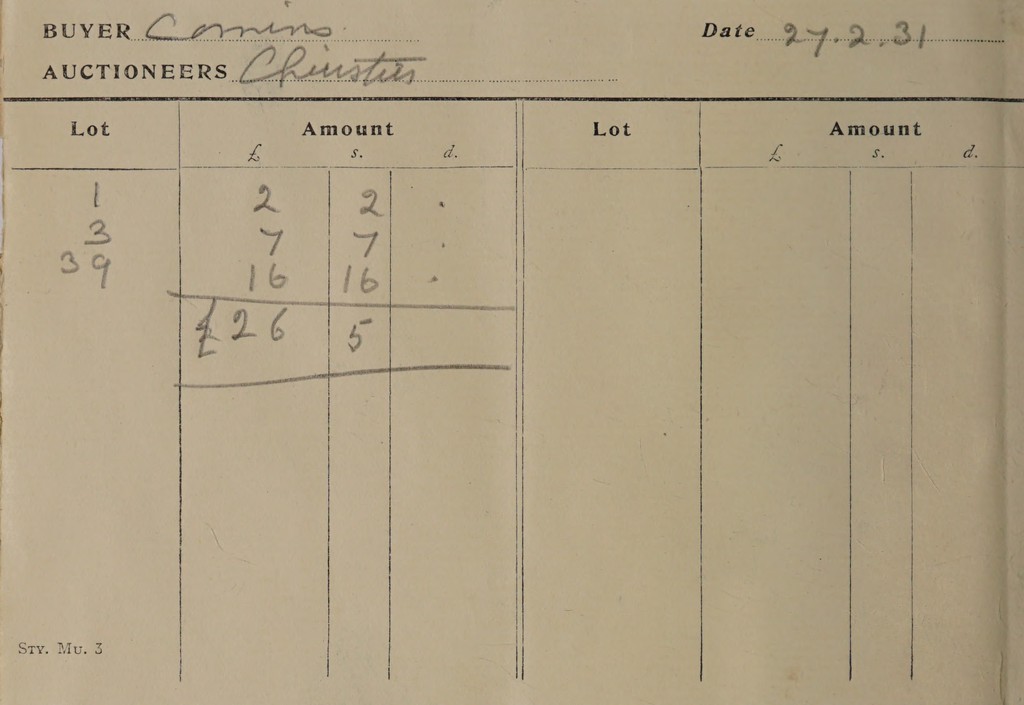 BUYER Comins
Date 27.2.31
AUCTIONEERS Christies
Lot Amount Lot Amount
£ s. d. £ s. d.
1 2 2 .
3 7 7 .
39 16 16 .
£26 5
STY. MU. 3